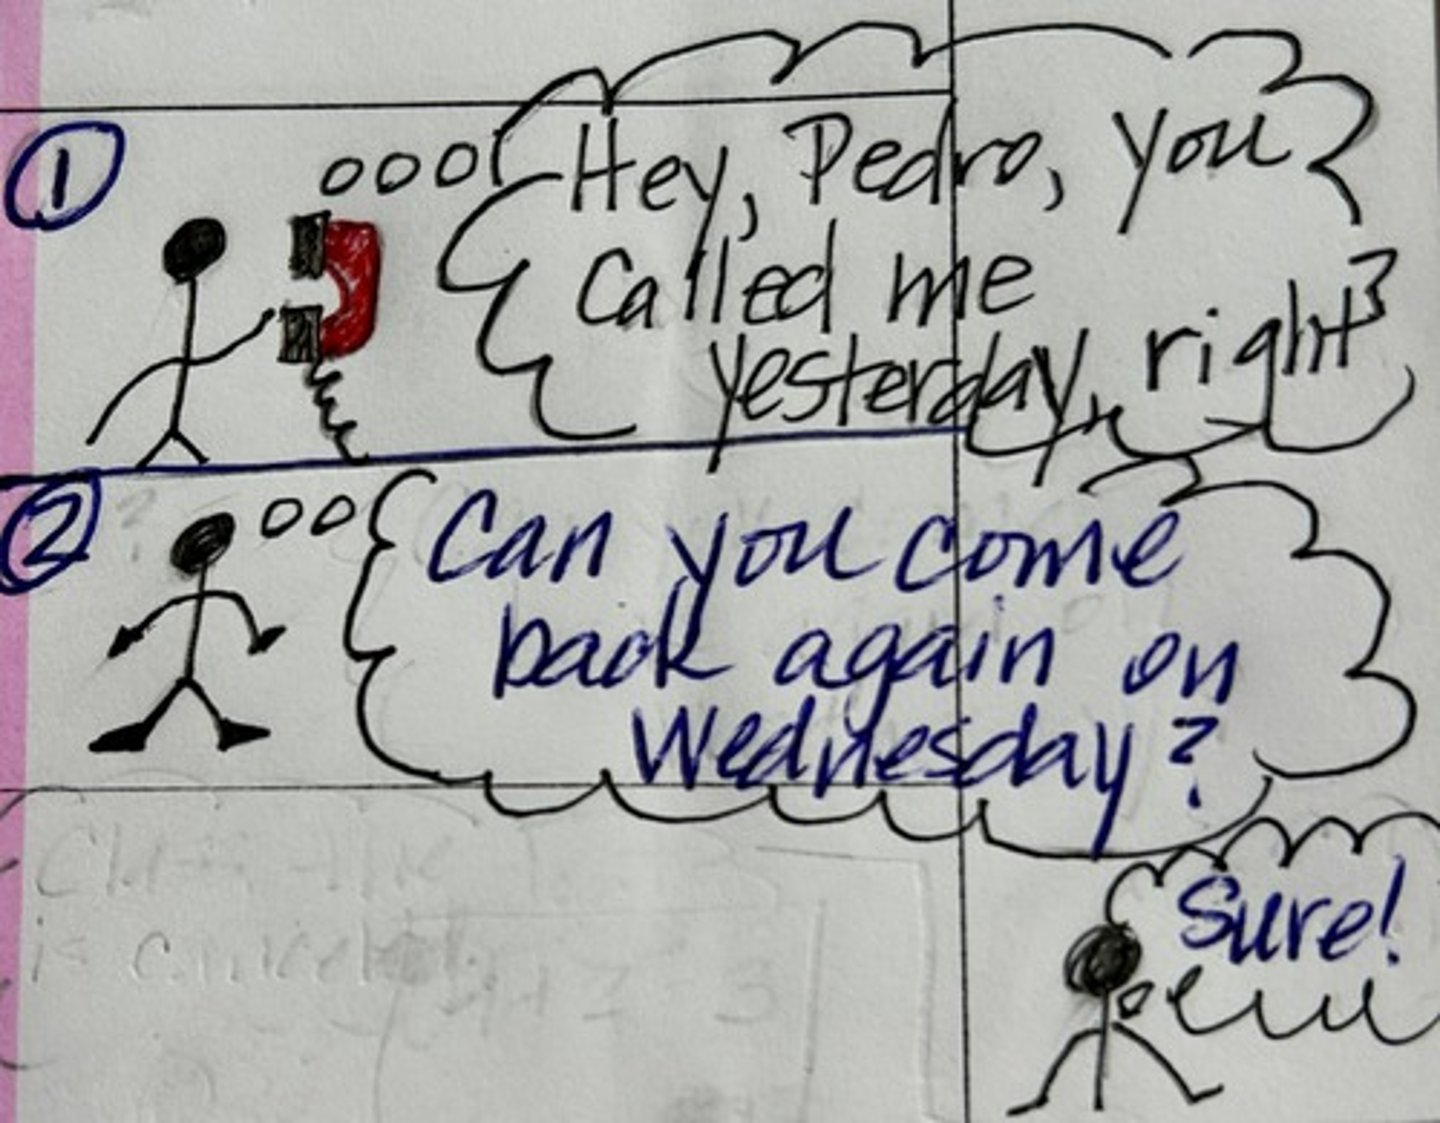 1
Hey, Pedro, you
Called me
yesterday, right?
2
Can you come
back again on
Wednesday?
Sure!